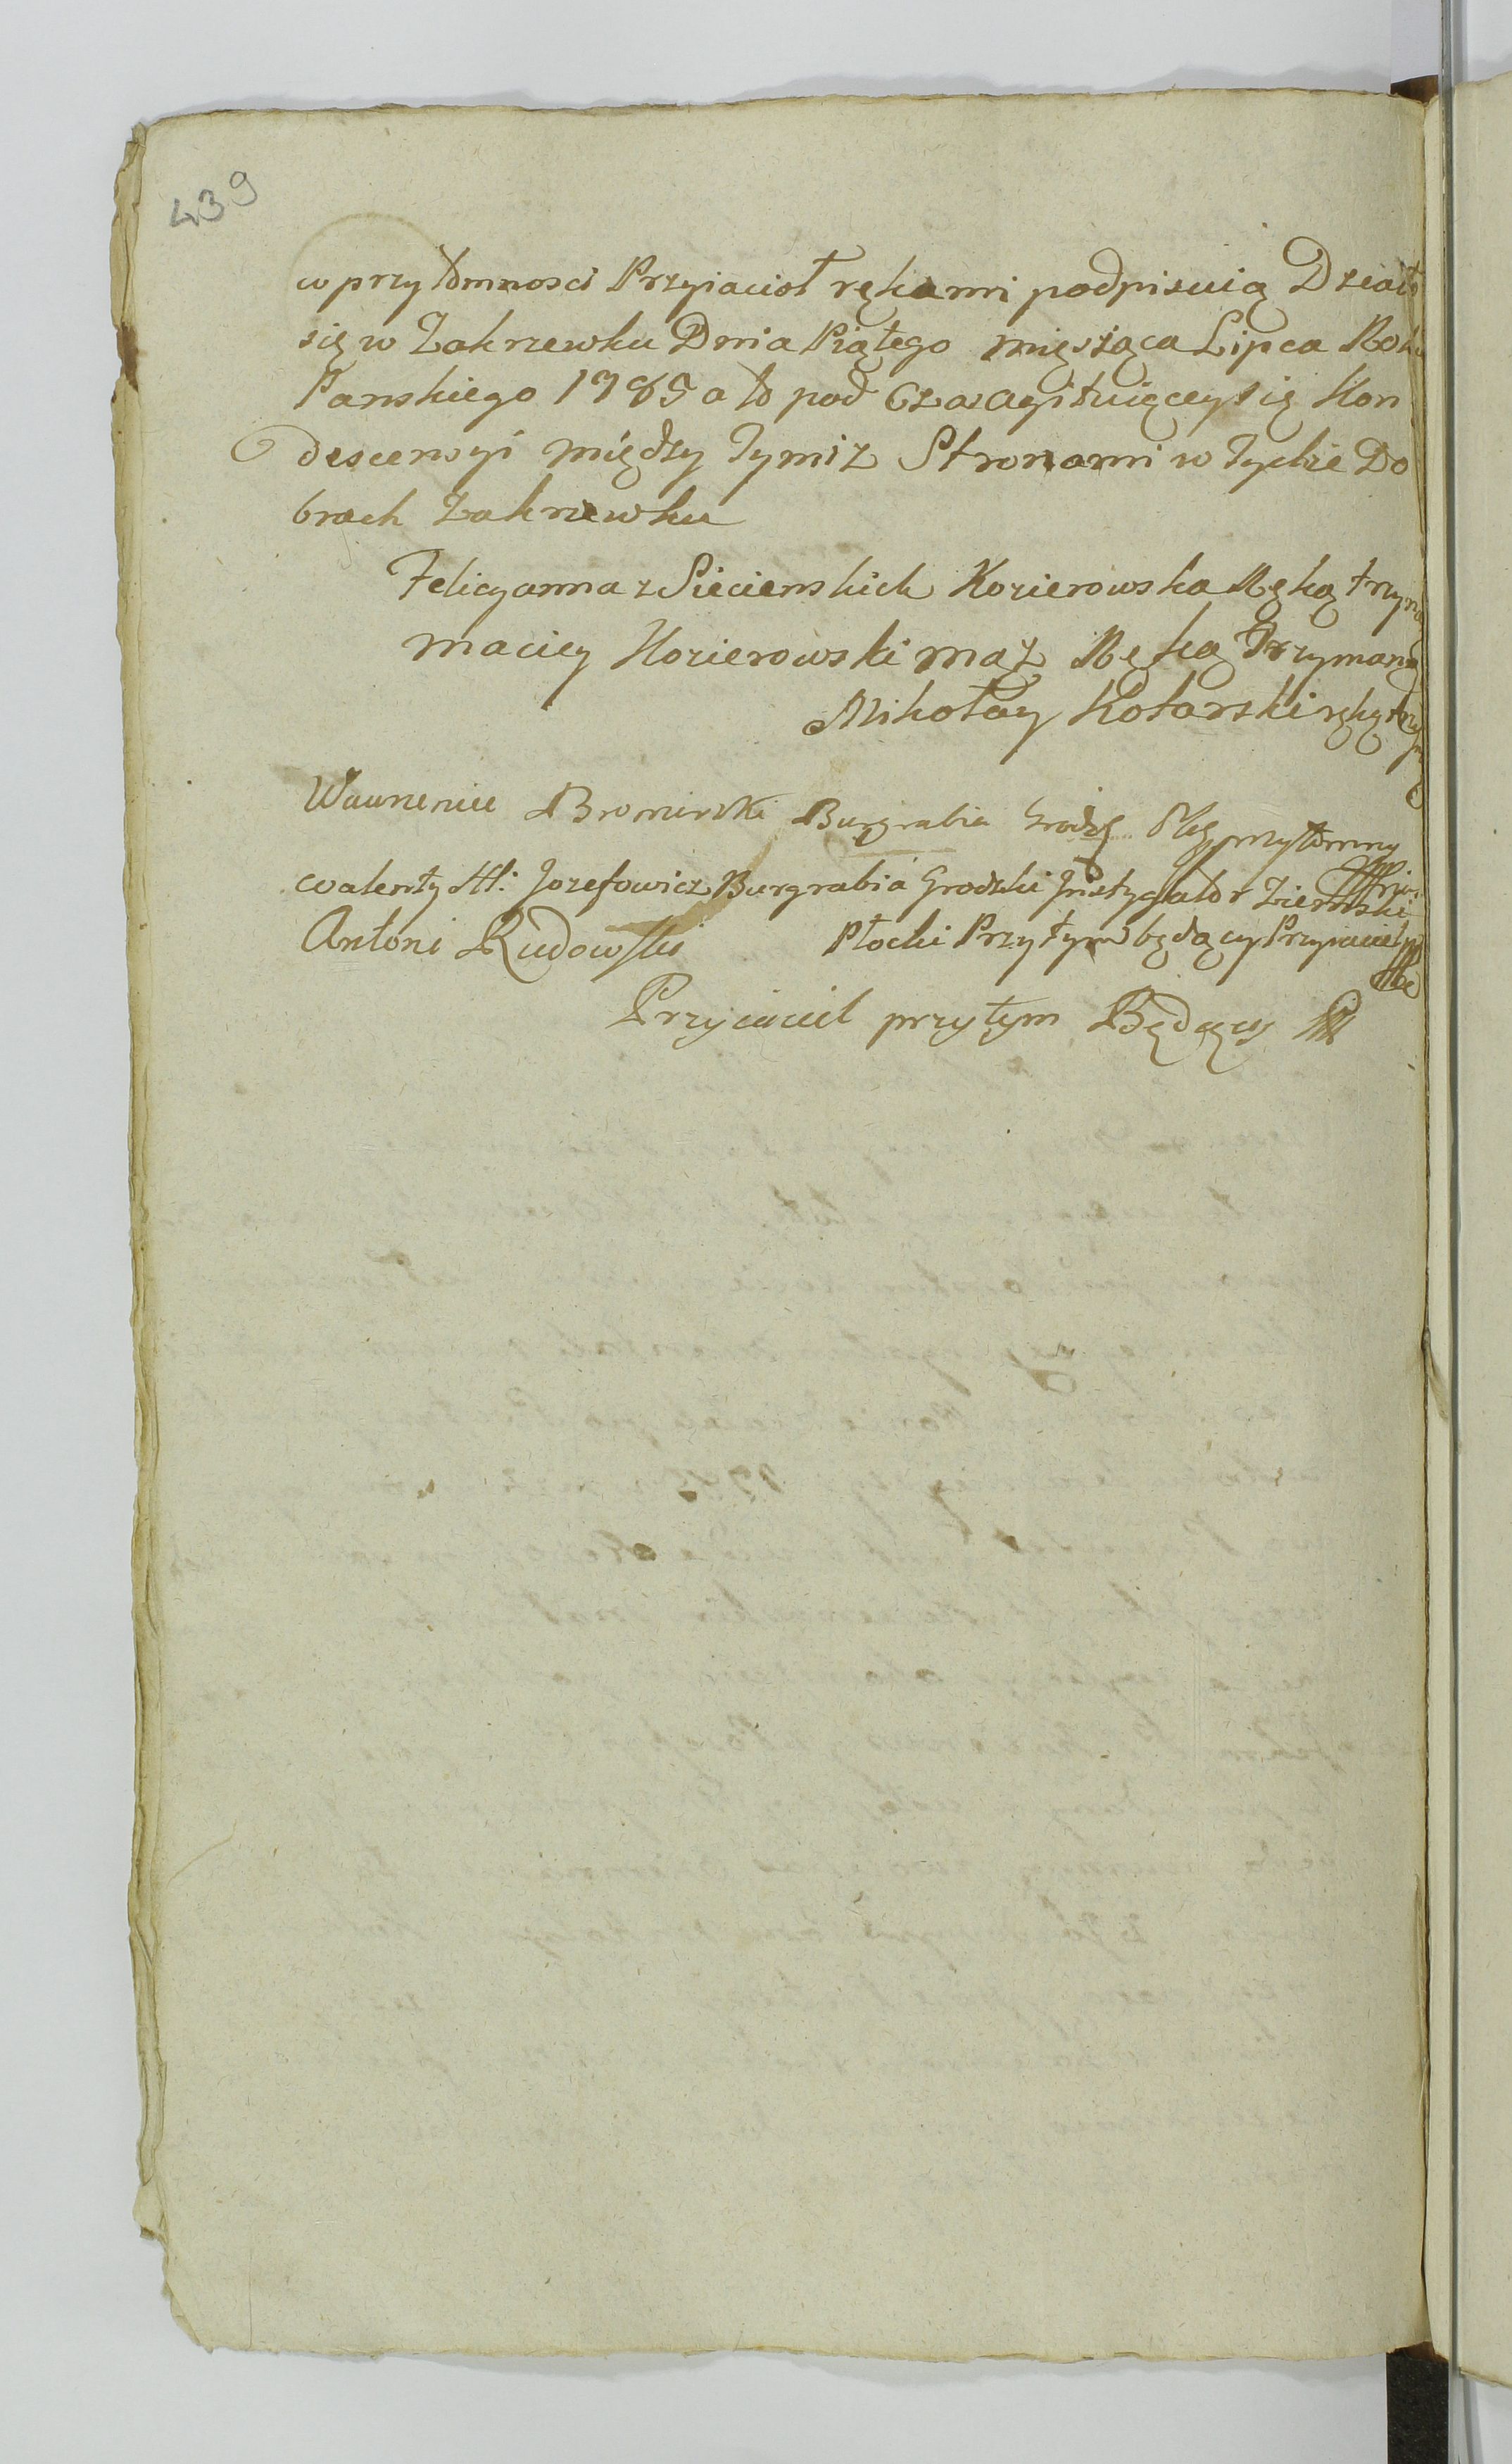 439
w przytomnosci Przyiacioł rękami podpisuią Działo
się w Zakrzewku Dnia Piątego miesiąca Lipca Roku
Panskiego 1785 a to pod Czas agituiącey się Kon
descensyi między tymiż Stronami w tychże Do
brach Zakrzewku
Felicyanna z Siecienskich Kozierowska Ręką trzym
Maciey Kozierowski mąż Ręką trzymaną
Mikołay Kotarski ręką trzym
Wawrzeniec Bromirski Burgrabia Grodz przytomny
Walenty H: Jozefowicz Burgrabia Grodzki Instygator Ziemski
Antoni Rudowski Płocki Przytym będący Przyiaciel
Przyiaciel przytym Będący